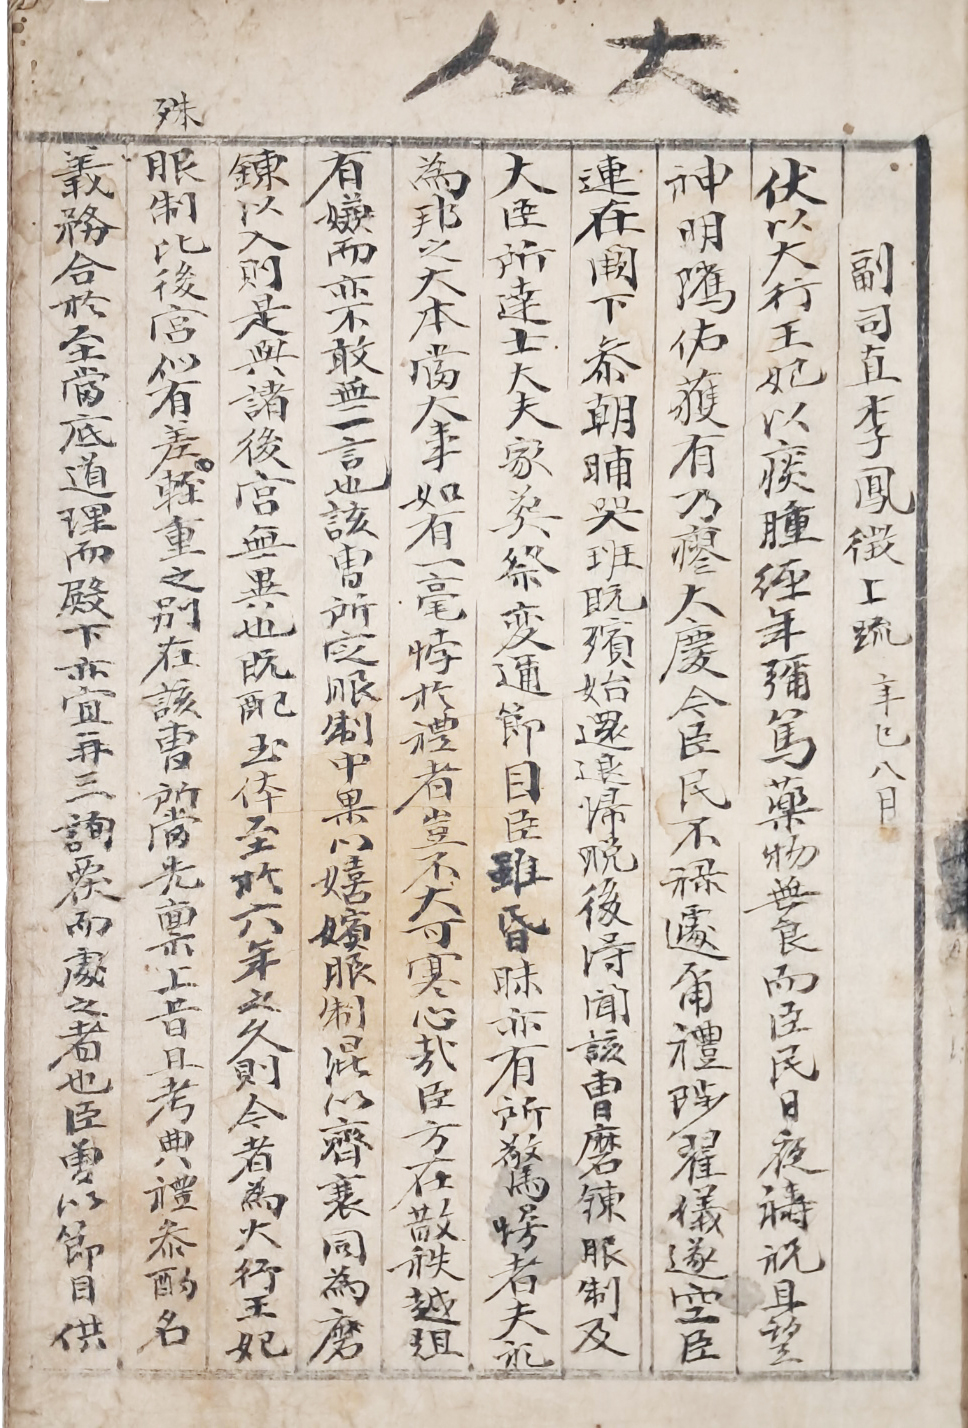 大人
副司直李鳳徵上疏 辛巳八月
伏以大行王妃以痰腫經年彌篤藥物無良而臣民日夜禱祝且望
神明隲佑獲有乃瘳大慶今臣民不祿遽爾禮陟翟儀遂空臣
連在闕下參朝晡哭班既殯始還退歸晩後得聞該曹磨鍊服制及
大臣所達士大夫家葬祭変通節目臣雖昏昧亦有所驚愕者夫礼
為邦之大本當大事如有一毫悖於禮者豈不大可寒心㢤臣方在散秩越俎
有嫌而亦不敢無一言也該曹所定服制中果以嬉嬪服制混以齊衰同為磨
鍊以入則是與諸後宮無異也既配玉体至於六年之久則今者為大行王妃
殊
服制比後宮似有差輕重之別在該曹所當先稟上旨且考典禮參酌名
義務合於至當底道理而殿下亦宜再三詢衆而處之者也臣曹以節目供